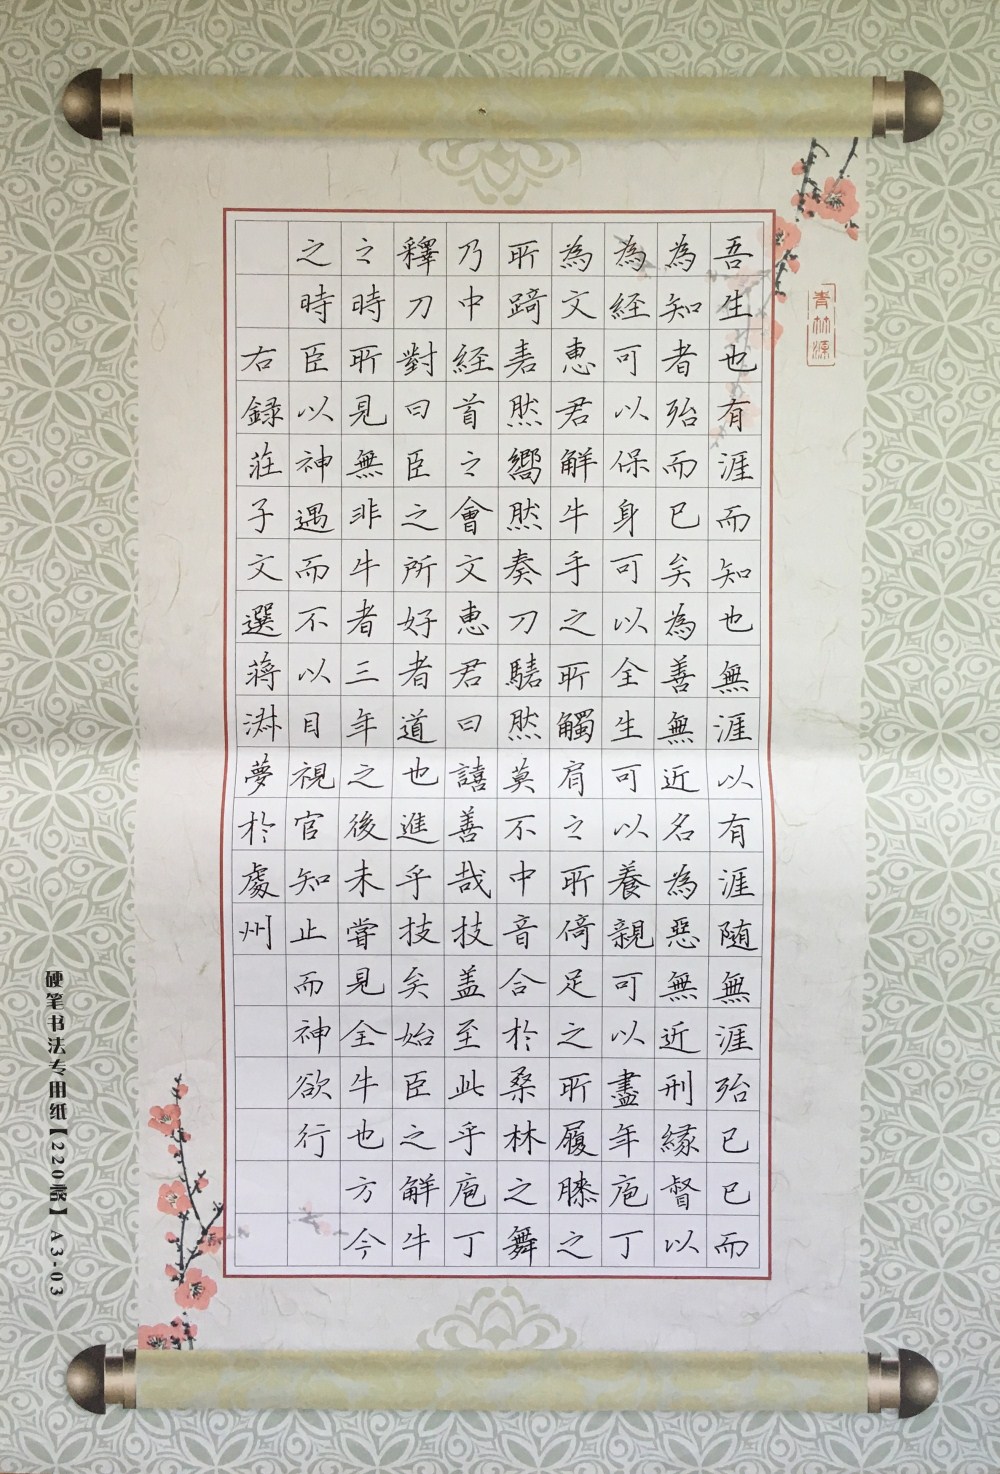 吾生也有涯而知也無涯以有涯随無涯殆已已而
為知者殆而已矣為善無近名為惡無近刑緣督以
為経可以保身可以全生可以養親可以盡年庖丁
為文恵君解牛手之所觸肩之所倚足之所履膝之
所踦砉然嚮然奏刀騞然莫不中音合於桑林之舞
乃中経首之會文恵君曰譆善哉技盖至此乎庖丁
釋刀對曰臣之所好者道也進乎技矣始臣之解牛
之時所見無非牛者三年之後未嘗見全牛也方今
之時臣以神遇而不以目視官知止而神欲行
右録莊子文選蔣淋夢於處州
青林源
硬笔书法专用纸【220格】A3-03